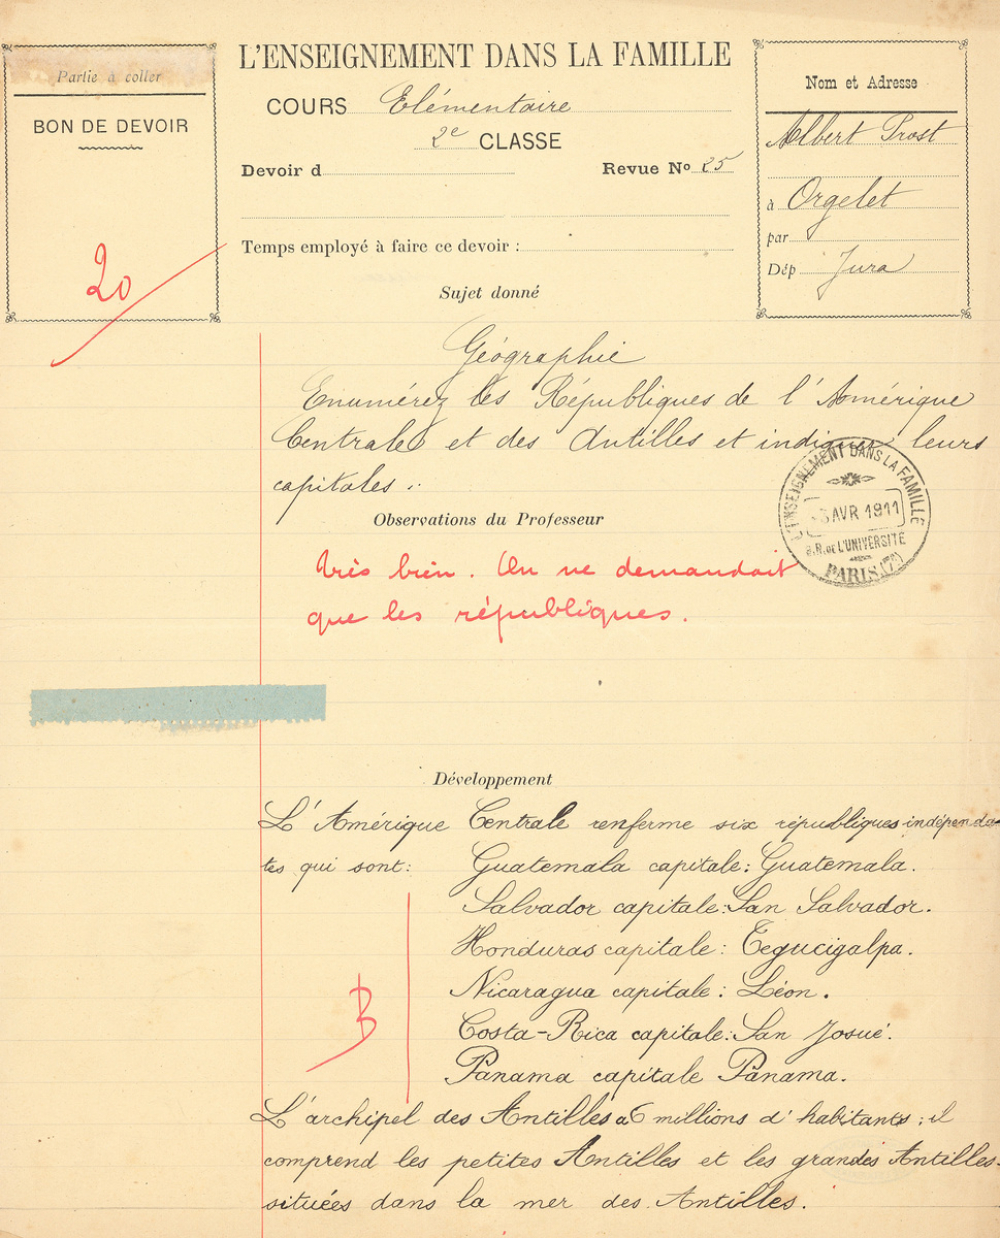 Partie à coller
BON DE DEVOIR
20
L'ENSEIGNEMENT DANS LA FAMILLE
COURS Elémentaire
2e CLASSE
Devoir d
Revue No 25
Temps employé à faire ce devoir :
Nom et Adresse
Albert Prost
à Orgelet
par
Dép Jura
Sujet donné
Géographie
Enumérez les Républiques de l'Amérique
Centrale et des Antilles et indiquer leurs
capitales.
L'ENSEIGNEMENT DANS LA FAMILLE
3 AVR 1911
R. DE L'UNIVERSITÉ
PARIS (7e)
Observations du Professeur
Très bien. On ne demandait
que les républiques.
Développement
L'Amérique Centrale renferme six républiques indépenda-
tes qui sont: Guatemala capitale: Guatemala.
Salvador capitale: San Salvador.
Honduras capitale: Tegucigalpa.
Nicaragua capitale: Léon.
Costa-Rica capitale: San Josué.
Panama capitale Panama.
B
L'archipel des Antilles a 6 millions d'habitants; il
comprend les petites Antilles et les grandes Antilles
situées dans la mer des Antilles.